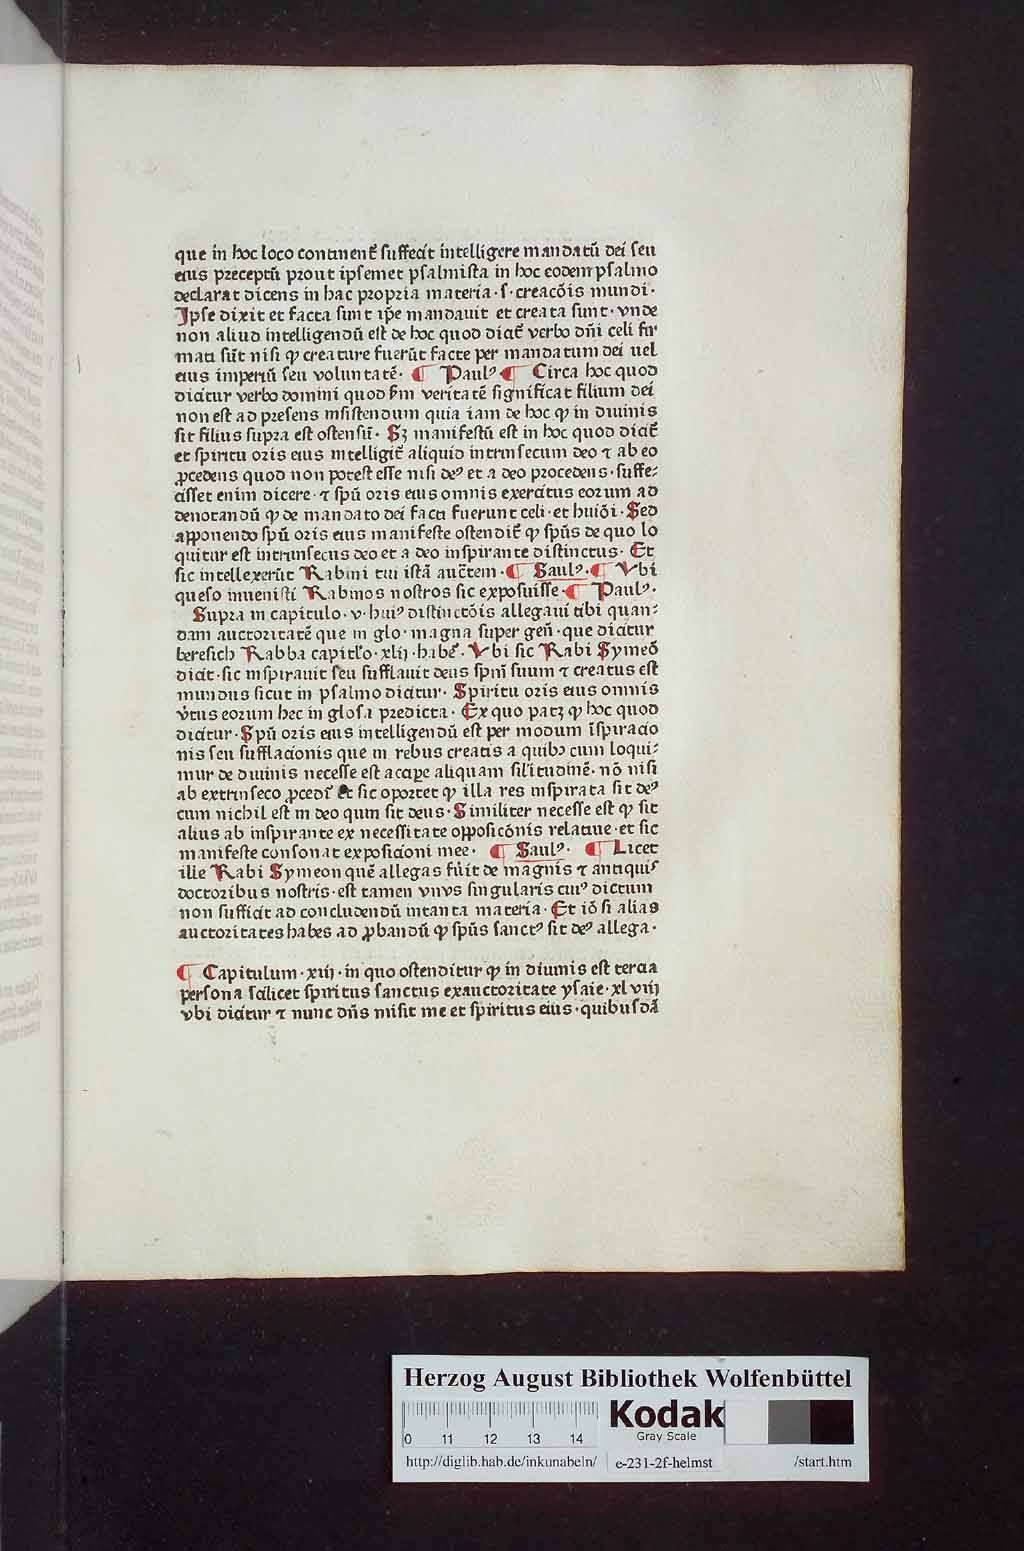 que in hoc loco continent᷒ suffecit intelligere mandatū dei seu
eius preceptū prout ipsemet psalmista in hoc eodem psalmo
declarat dicens in hac propria materia · s · creacōis mundi ·
Ipse dixit et facta sunt ip̄e mandauit et creata sunt · vnde
non aliud intelligendū est de hoc quod dicit᷒ verbo dn̄i celi fir
mati sūt nisi ꝙ creature fuerūt facte per mandatum dei uel
eius imperiū seu voluntatē · ¶ Paulꝰ ¶ Circa hoc quod
dicitur verbo domini quod ẜm veritatē significat filium dei
non est ad presens insistendum quia iam de hoc ꝙ in diuinis
sit filius supra est ostensū · Sꝫ manifestū est in hoc quod dicit᷒
et spiritu oris eius intelligit᷒ aliquid intrinsecum deo ⁊ ab eo
ꝓcedens quod non potest esse nisi deꝰ et a deo procedens · suffe⸗
cisset enim dicere · ⁊ spū oris eius omnis exercitus eorum ad
denotandū ꝙ de mandato dei facti fuerunt celi · et huiōi · Sed
apponendo spū oris eius manifeste ostendit᷒ ꝙ spūs de quo lo
quitur est intrinsecus deo et a deo inspirante distinctus · Et
sic intellexerūt Rabini tui istā auct̄em · ¶ Saulꝰ · ¶ Vbi
queso inuenisti Rabinos nostros sic exposuisse · ¶ Paulꝰ ·
Supra in capitulo · v · huiꝰ distinctōis allegaui tibi quan⸗
dam auctoritatē que in glo · magna super gen̄ · que dicitur
beresich Rabba capitl̄o · xlij · habet᷒ · Vbi sic Rabi Symeō
dicit · sic inspirauit seu sufflauit deus spm̄ suum ⁊ creatus est
mundus sicut in psalmo dicitur · Spiritu oris eius omnis
v̓tus eorum hec in glosa predicta · Ex quo patꝫ ꝙ hoc quod
dicitur · Spū oris eius intelligendū est per modum īspiracio
nis seu sufflacionis que in rebus creatis a quibꝰ cum loqui⸗
mur de diuinis necesse est accipe aliquam sil̓itudinē · nō nisi
ab extrinseco ꝓcedit᷒ Et sic oportet ꝙ illa res inspirata sit deꝰ
cum nichil est in deo quin sit deus · Similiter necesse est ꝙ sit
alius ab inspirante ex necessitate opposicōnis relatiue · et sic
manifeste consonat exposicioni mee · ¶ Saulꝰ · ¶ Licet
ille Rabi Symeon quē allegas fūit de magnis ⁊ antiquis
doctoribus nostris · est tamen vnvs singularis cuiꝰ dictum
non sufficit ad concludendū in tanta materia · Et iō si alias
auctoritates habes ad ꝓbandū ꝙ spūs sanctꝰ sit deꝰ allega ·
¶ Capitulum · xiij · in quo ostenditur ꝙ in diuinis est tercia
persona scilicet spiritus sanctus ex auctoritate ysaie · xlviij
vbi dicitur ⁊ nunc dn̄s misit me et spiritus eius · quibusdā
Herzog August Bibliothek Wolfenbüttel
0 11 12 13 14
Kodak
Gray Scale
http://diglib.hab.de/inkunabeln/ e-231-2f-helmst /start.htm